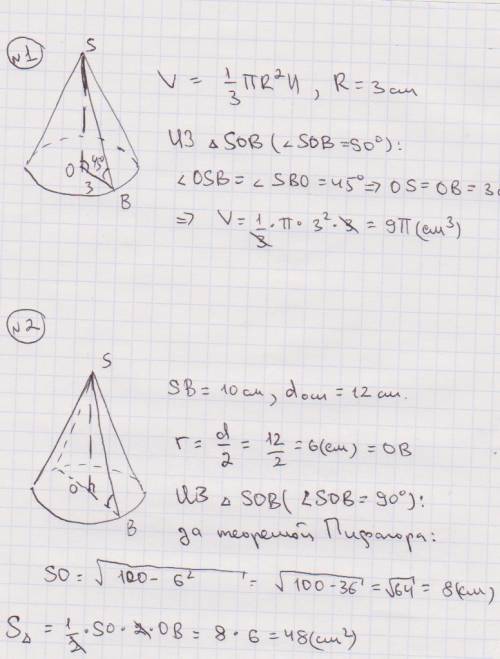 №1
S
O 45° 3 B
V = 1/3 πR²H, R = 3 см
ИЗ △SOB (∠SOB = 90°):
∠OSB = ∠SBO = 45° ⇒ OS = OB = 3с
⇒ V = 1/3 · π · 3² · 3 = 9π (см³)
№2
S
O B
SB = 10 см, dосн = 12 см.
r = d/2 = 12/2 = 6 (см) = OB
ИЗ △SOB (∠SOB = 90°):
за теоремой Пифагора:
SO = √100 - 6² = √100 - 36 = √64 = 8 (см)
S△ = 1/2 · SO · 2 · OB = 8 · 6 = 48 (см²)